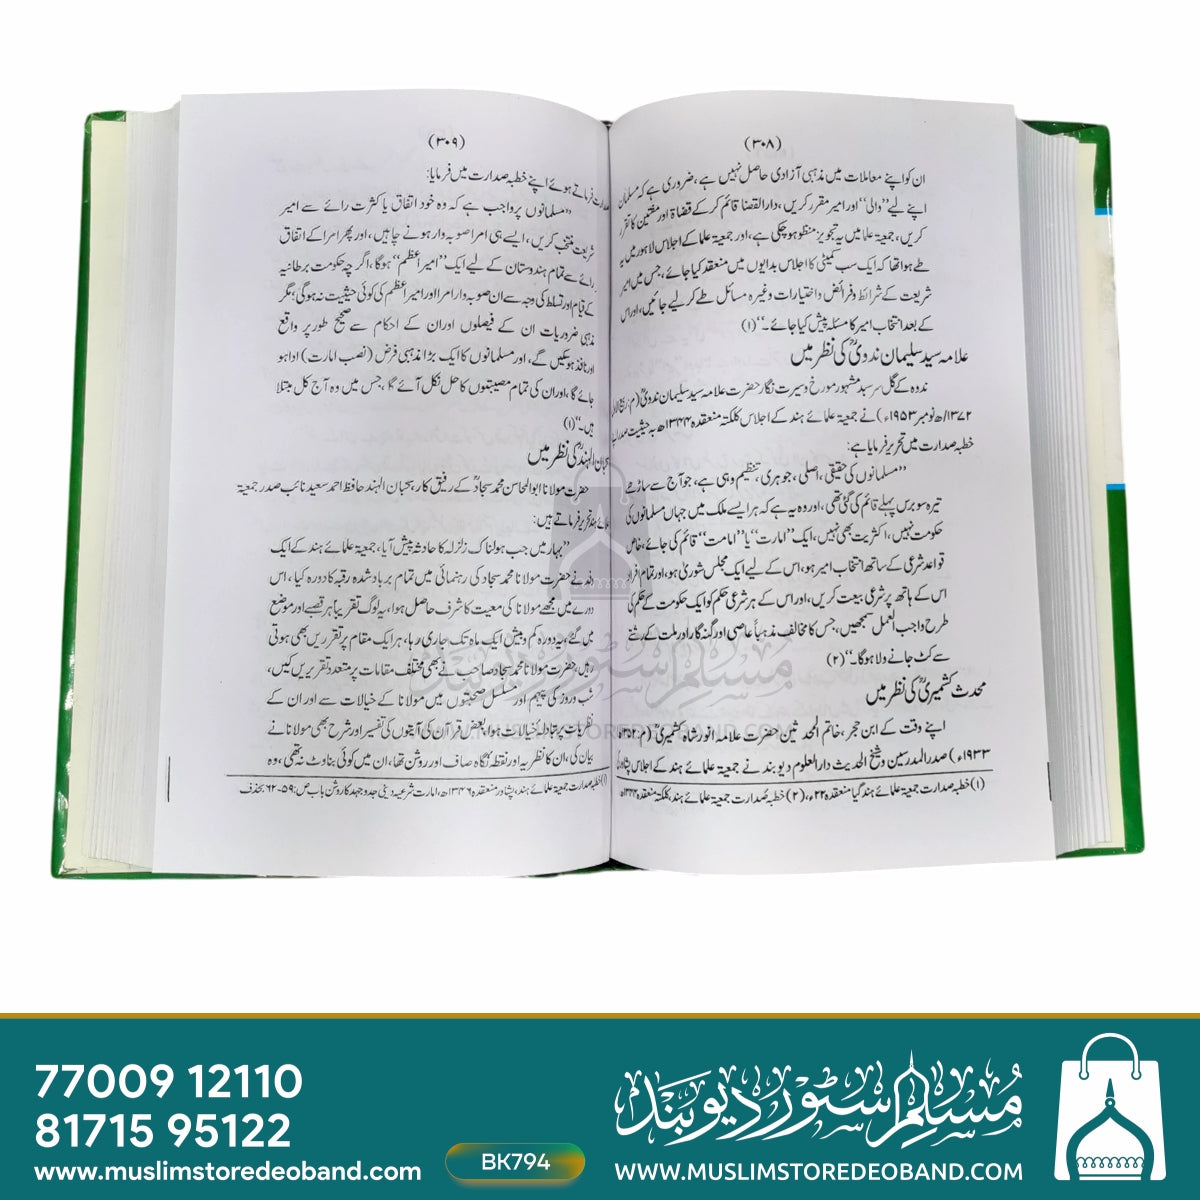 (۳۰۸)
ان کو اپنے معاملات میں مذہبی آزادی حاصل نہیں ہے، ضروری ہے کہ مسلمان
اپنے لیے "والی" اور امیر مقرر کریں، دارالقضا قائم کر کے قضاۃ اور مفتین کا تقرر
کریں، جمعیۃ علما میں یہ تجویز منظور ہو چکی ہے، اور جمعیۃ علما کے اجلاس لاہور میں یہ
طے ہوا تھا کہ ایک سب کمیٹی کا اجلاس بدایوں میں منعقد کیا جائے، جس میں امیر
شریعت کے شرائط و فرائض و اختیارات وغیرہ مسائل طے کر لیے جائیں، اور اس
کے بعد انتخاب امیر کا مسئلہ پیش کیا جائے۔" (۱)
علامہ سید سلیمان ندویؒ کی نظر میں
ندوہ کے گل سرسبد مشہور مورخ و سیرت نگار حضرت علامہ سید سلیمان ندویؒ (م:
۱۳۷۲ھ/نومبر ۱۹۵۳ء) نے جمعیۃ علمائے ہند کے اجلاس کلکتہ منعقدہ ۱۳۴۴ھ بہ حیثیت صدر
خطبہ صدارت میں تحریر فرمایا ہے:
"مسلمانوں کی حقیقی، اصلی، جوہری، تنظیم وہی ہے، جو آج سے ساڑھے
تیرہ سو برس پہلے قائم کی گئی تھی، اور وہ یہ ہے کہ ہر ایسے ملک میں جہاں مسلمانوں کی
حکومت نہیں، اکثریت بھی نہیں، ایک "امارت" یا "امامت" قائم کی جائے، خاص
قواعد شرعی کے ساتھ انتخاب امیر ہو، اس کے لیے ایک مجلس شوریٰ ہو، اور تمام افراد
اس کے ہاتھ پر شرعی بیعت کریں، اور اس کے ہر شرعی حکم کو ایک حکومت کے حکم کی
طرح واجب العمل سمجھیں، جس کا مخالف مذہباً عاصی اور گنہ گار اور ملت کے رشتے
سے کٹ جانے والا ہوگا۔" (۲)
محدث کشمیریؒ کی نظر میں
اپنے وقت کے ابن حجر، خاتم المحدثین حضرت علامہ انور شاہ کشمیریؒ (م: ۱۳۵۲ھ
۱۹۳۳ء) صدر المدرسین و شیخ الحدیث دارالعلوم دیوبند نے جمعیۃ علمائے ہند کے اجلاس پشاور
(۱) خطبہ صدارت جمعیۃ علمائے ہند گیا منعقدہ ۲۲ء، (۲) خطبۂ صدارت جمعیۃ علمائے ہند، کلکتہ منعقدہ ۱۳۴۴ھ
(۳۰۹)
صدارت فرماتے ہوئے اپنے خطبہ صدارت میں فرمایا:
"مسلمانوں پر واجب ہے کہ وہ خود اتفاق یا کثرت رائے سے امیر
شریعت منتخب کریں، ایسے ہی امرا صوبہ دار ہونے چاہیں، اور پھر امرا کے اتفاق
رائے سے تمام ہندوستان کے لیے ایک "امیر اعظم" ہوگا، اگرچہ حکومت برطانیہ
کے قیام اور تسلط کی وجہ سے ان صوبہ دار امرا اور امیر اعظم کی کوئی حیثیت نہ ہوگی؛ مگر
مذہبی ضروریات ان کے فیصلوں اور ان کے احکام سے صحیح طور پر واقع
اور نافذ ہوسکیں گے، اور مسلمانوں کا ایک بڑا مذہبی فرض (نصب امارت) ادا ہو
جائے گا، اور ان کی تمام مصیبتوں کا حل نکل آئے گا، جس میں وہ آج کل مبتلا
ہیں۔" (۱)
سحبان الہندؒ کی نظر میں
حضرت مولانا ابوالمحاسن محمد سجادؒ کے رفیق کار، سحبان الہند حافظ احمد سعید نائب صدر جمعیۃ
علمائے ہند تحریر فرماتے ہیں:
"بہار میں جب ہولناک زلزلہ کا حادثہ پیش آیا، جمعیۃ علمائے ہند کے ایک
وفد نے حضرت مولانا محمد سجاد کی رہنمائی میں تمام برباد شدہ رقبہ کا دورہ کیا، اس
دورے میں مجھے مولانا کی معیت کا شرف حاصل ہوا، یہ لوگ تقریباً ہر قصبے اور موضع
میں گئے، یہ دورہ کم و بیش ایک ماہ تک جاری رہا، ہر ایک مقام پر تقریریں بھی ہوتی
رہیں، حضرت مولانا محمد سجاد صاحب نے بھی مختلف مقامات پر متعدد تقریریں کیں،
شب و روز کی پیہم اور مسلسل صحبتوں میں مولانا کے خیالات سے اور ان کے
نظریات پر تبادلۂ خیالات ہوا، بعض قرآن کی آیتوں کی تفسیر اور شرح بھی مولانا نے
بیان کی، ان کا نظریہ اور نقطہ نگاہ صاف اور روشن تھا، ان میں کوئی بناوٹ نہ تھی، وہ
(۱) خطبہ صدارت جمعیۃ علمائے ہند، پشاور منعقدہ ۱۳۴۶ھ، امارت شرعیہ دینی جدوجہد کا روشن باب ص: ۵۹-۶۲ بحذف
مسلم سٹور دیوبند
MUSLIMSTOREDEOBAND.COM
77009 12110
81715 95122
www.muslimstoredeoband.com
BK794
مسلم سٹور دیوبند
WWW.MUSLIMSTOREDEOBAND.COM